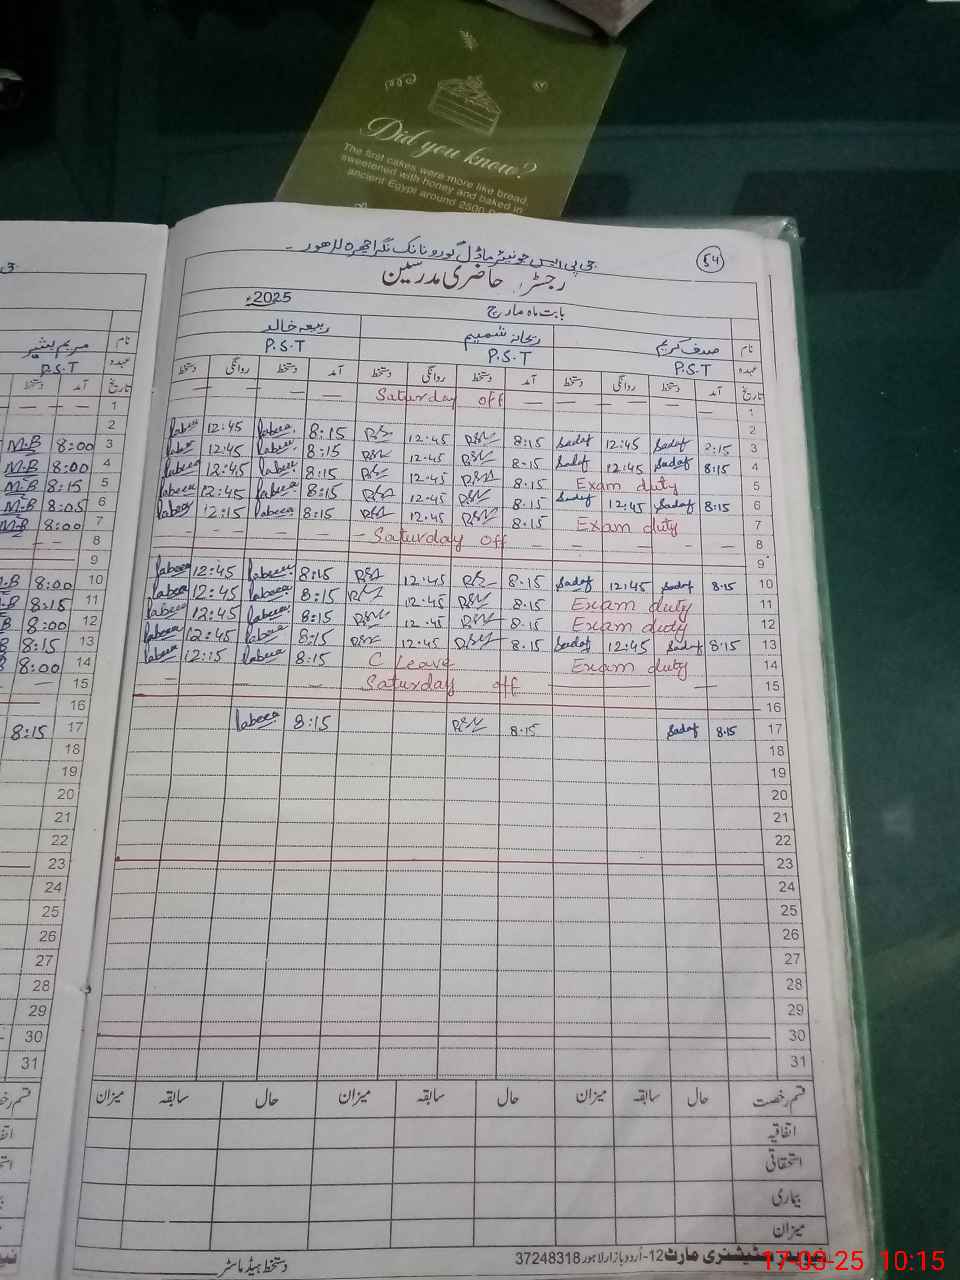 Did you know?
The first cakes were more like bread,
sweetened with honey and baked in
ancient Egypt around 2500
64
جی پی ایس جونیئر ماڈل گورونانک نگر اچھرہ لاہور -
رجسٹر حاضری مدرسین
بابت ماہ مارچ 2025ء
نام صدف کریم ریحانہ شمیم ربیعہ خالد
عہدہ P.S.T P.S.T P.S.T
تاریخ آمد دستخط روانگی دستخط آمد دستخط روانگی دستخط آمد دستخط روانگی دستخط
1 Saturday off
2
3 2:15 Sadaf 12:45 Sadaf 8.15 12.45 8:15 12:45
4 8:15 Sadaf 12:45 Sadaf 8.15 12.45 8:15 12:45
5 Exam duty 8.15 12.45 8:15 12:45
6 8:15 Sadaf 12:45 Sadaf 8.15 12.45 8:15 12:45
7 Exam duty 8.15 12.45 8:15 12:15
8 Saturday off
9
10 8.15 Sadaf 12:45 Sadaf 8.15 12.45 8:15 12:45
11 Exam duty 8.15 12.45 8:15 12:45
12 Exam duty 8.15 12.45 8:15 12:45
13 8:15 Sadaf 12:45 Sadaf 8.15 12.45 8:15 12:45
14 Exam duty C Leave 8:15 12:15
15 Saturday off
16
17 8.15 Sadaf 8.15 8:15
18
19
20
21
22
23
24
25
26
27
28
29
30
31
قسم رخصت حال سابقہ میزان حال سابقہ میزان حال سابقہ میزان
اتفاقیہ
استحقاقی
بیماری
میزان
سٹیشنری مارٹ 12-اُردو بازار لاہور 37248318
دستخط ہیڈ ماسٹر
مریم بشیر
P.S.T
1
2
3 8:00 M-B
4 8:00 M-B
5 8:15 M-B
6 8:05 M-B
7 8:00 M-B
8
9
10 8:00
11 8:15
12 8:00
13 8:15
14 8:00
15
16
17 8:15
18
19
20
21
22
23
24
25
26
27
28
29
30
31
17-03-25 10:15